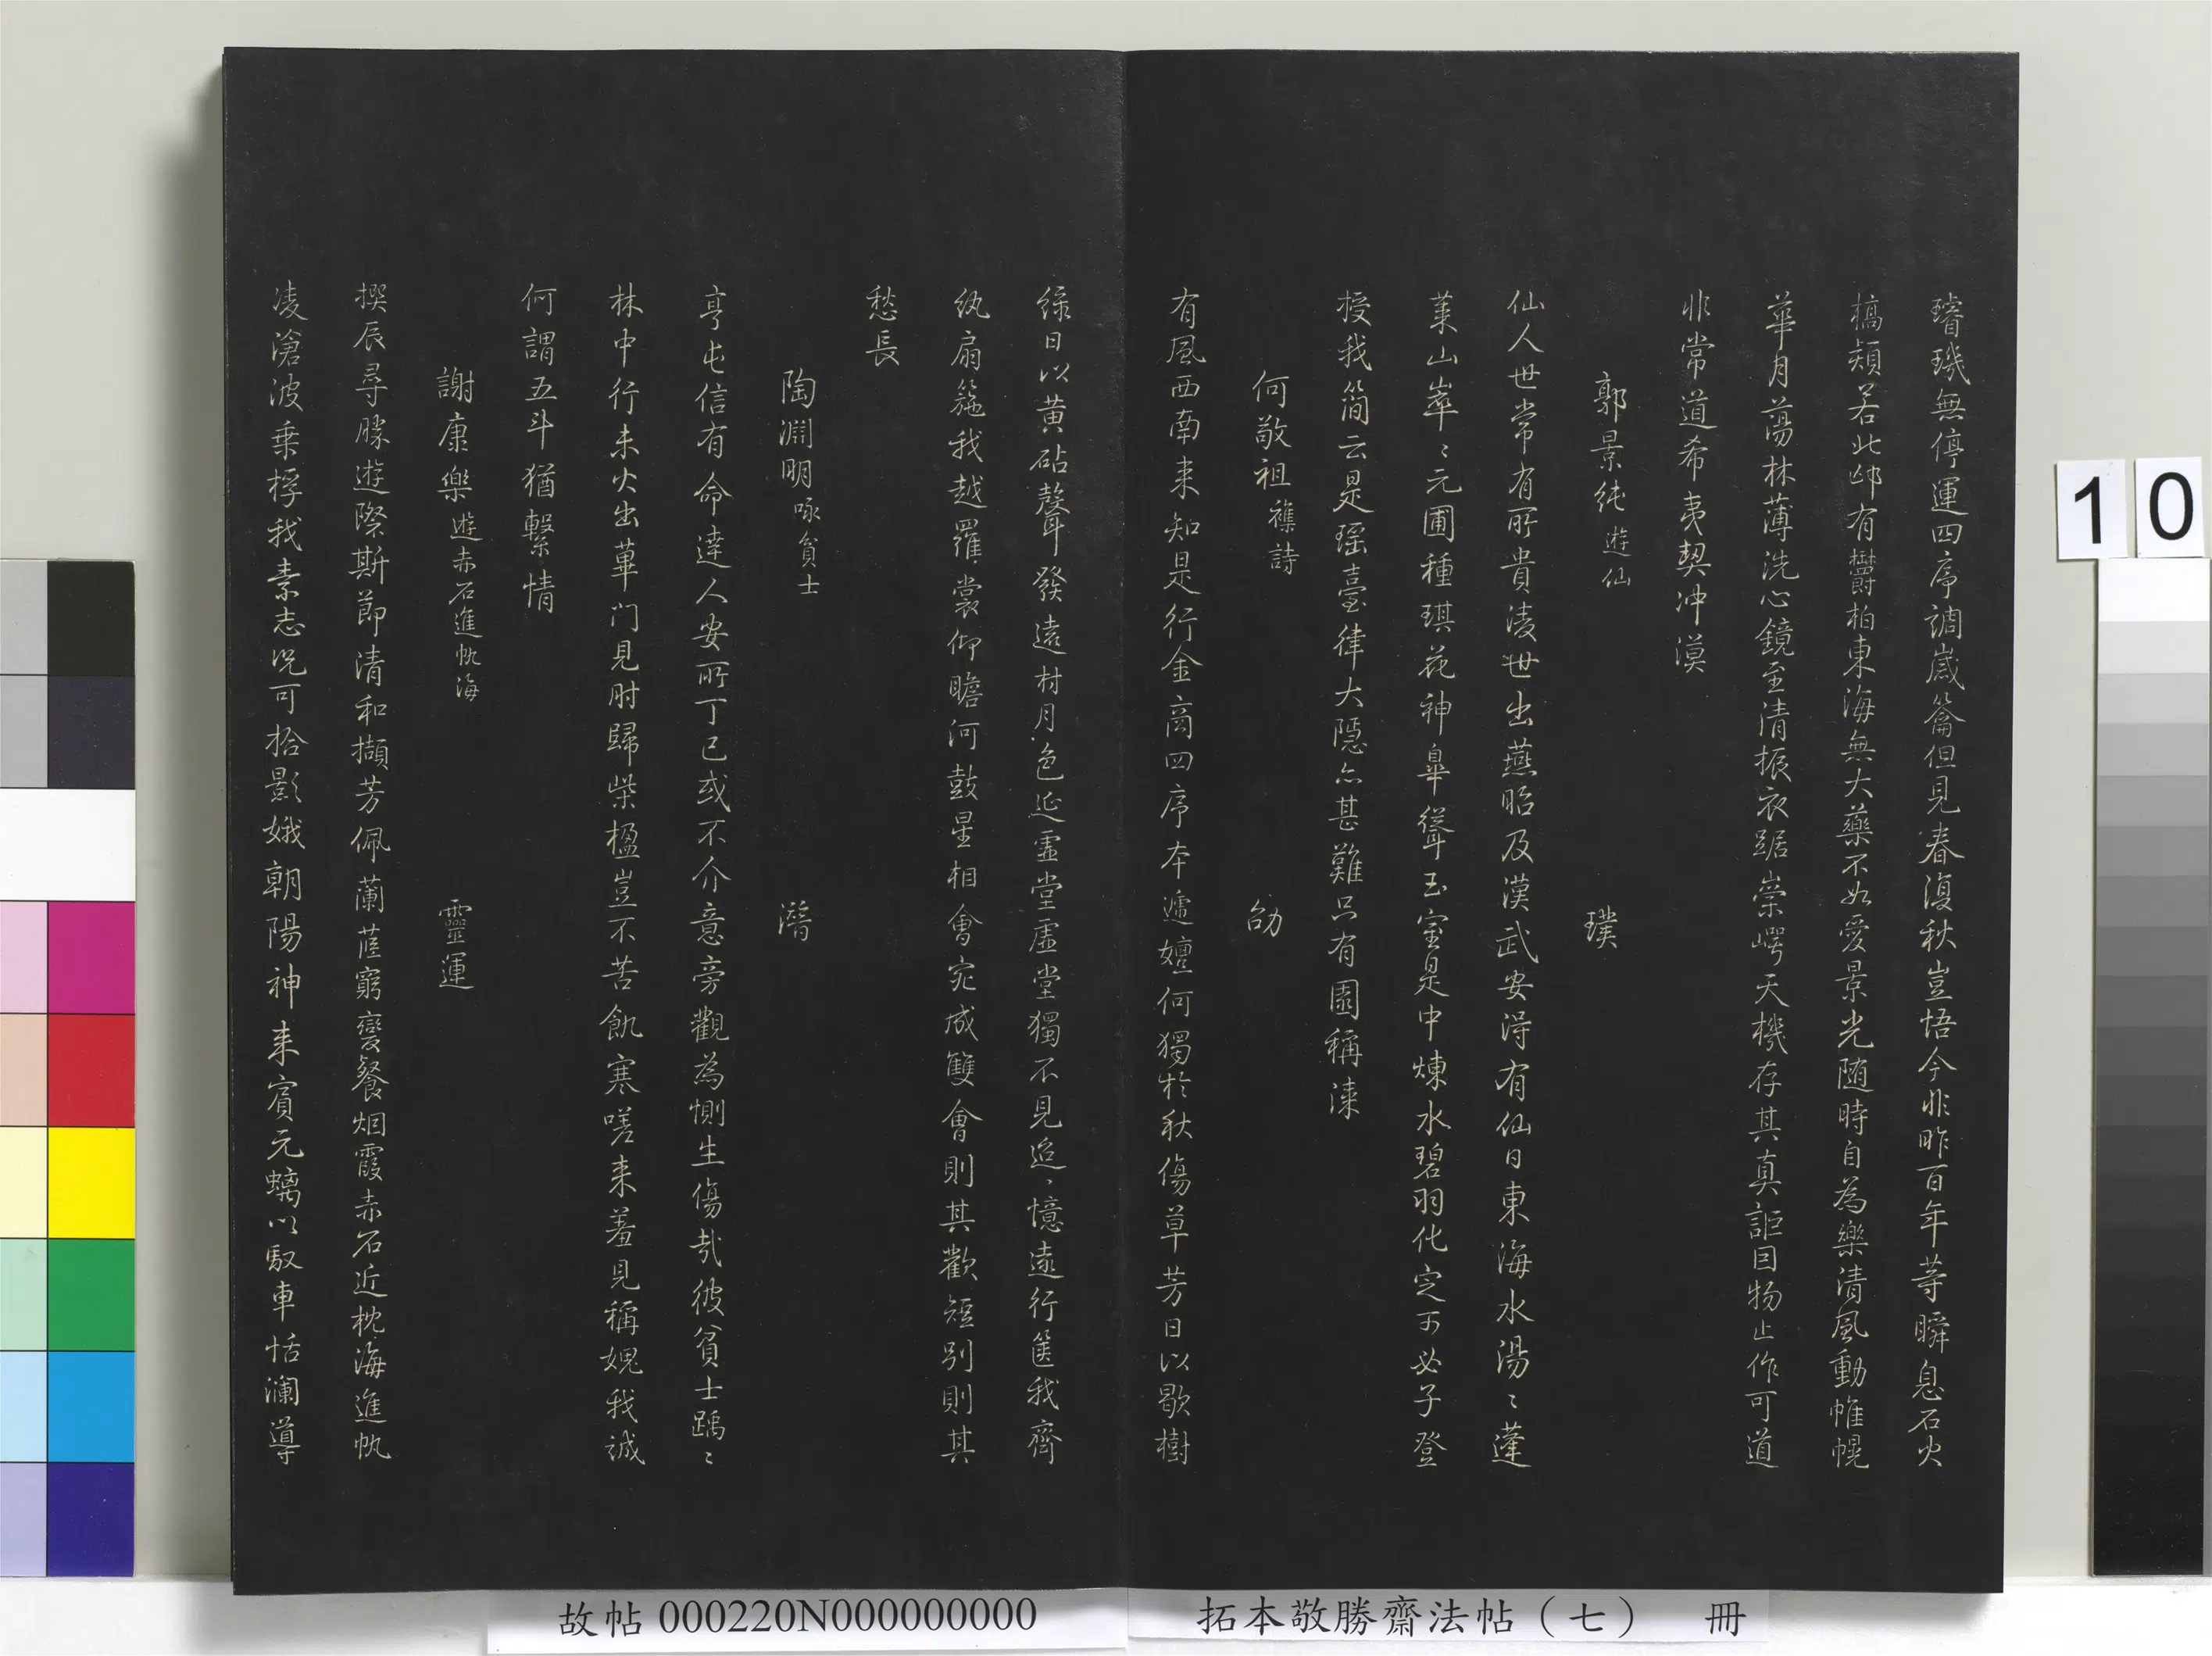 璿璣無停運四序調歲籥但見春復秋豈悟今非昨百年等瞬息石火
槁頹若此邙有欝柏東海無大藥不如愛景光随時自為樂清風動帷幌
華月蕩林薄洗心鏡至清振衣踞崇崿天機存其真詎因物止作可道
非常道希夷契冲漠
郭景純遊仙 璞
仙人世常有所貴淩世出燕昭及漢武安得有仙日東海水湯〻蓬
萊山崒〻元圃種琪花神皐聳玉室是中煉水碧羽化定可必子登
授我簡云是瑶臺律大隱亦甚難只有園稱漆
何敬祖襍詩 劭
有風西南来知是行金商四序本遞嬗何獨於秋傷草芳日以歇樹
綠日以黄砧聲發遠村月色延虛堂虛堂獨不見迢〻憶遠行篋我齊
紈扇箷我越羅裳仰瞻河鼓星相會宛成雙會則其歡短别則其
愁長
陶淵明咏貧士 潛
亨屯信有命達人安所丁已或不介意旁觀為惻生傷哉彼貧士踽〻
林中行未火出蓽门見肘歸柴楹豈不苦飢寒嗟来羞見稱媿我誠
何謂五斗猶繫情
謝康樂遊赤石進帆海 靈運
撰辰尋勝遊際斯節清和擷芳佩蘭茝窮變餐烟霞赤石近枕海進帆
淩滄波乗桴我素志况可拾影娥朝陽神来賓元螭以馭車恬瀾導
10
故帖 000220N000000000
拓本敬勝齋法帖（七） 冊